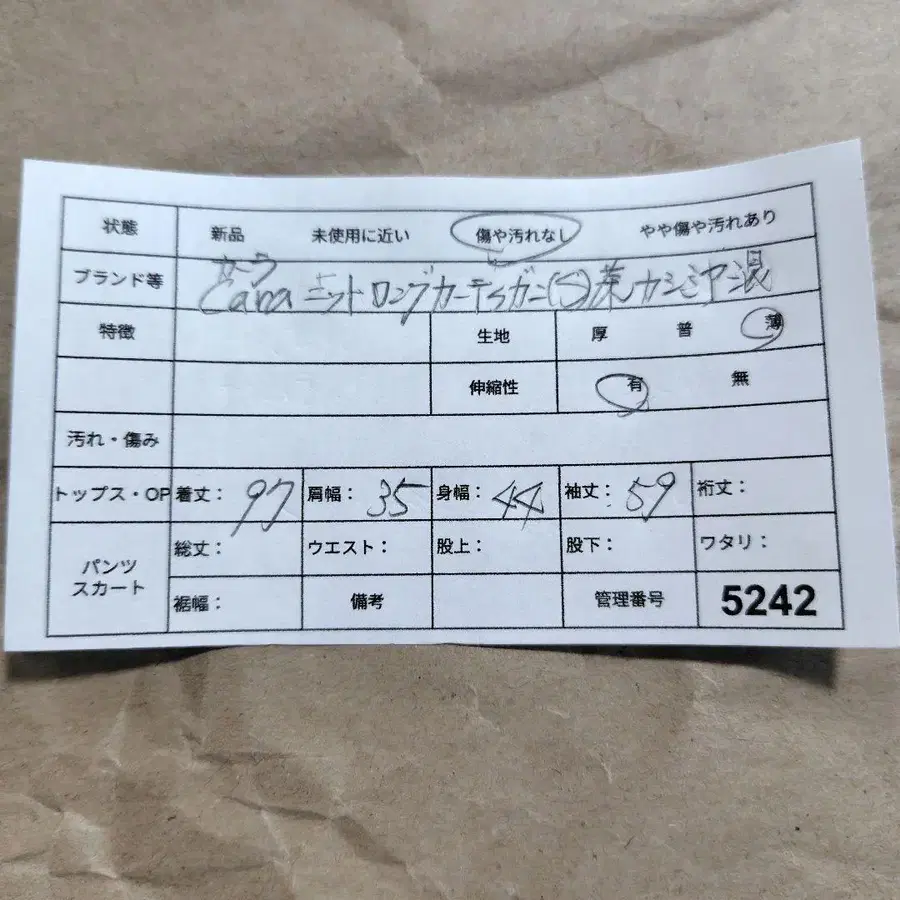 状態 新品 未使用に近い 傷や汚れなし やや傷や汚れあり
ブランド等 ニットロングカーディガン(S)茶カシミヤ混
特徴 生地 厚 普 薄
伸縮性 有 無
汚れ・傷み
トップス・OP 着丈: 97 肩幅: 35 身幅: 44 袖丈: 59 裄丈:
パンツ スカート 総丈: ウエスト: 股上: 股下: ワタリ:
裾幅: 備考 管理番号 5242